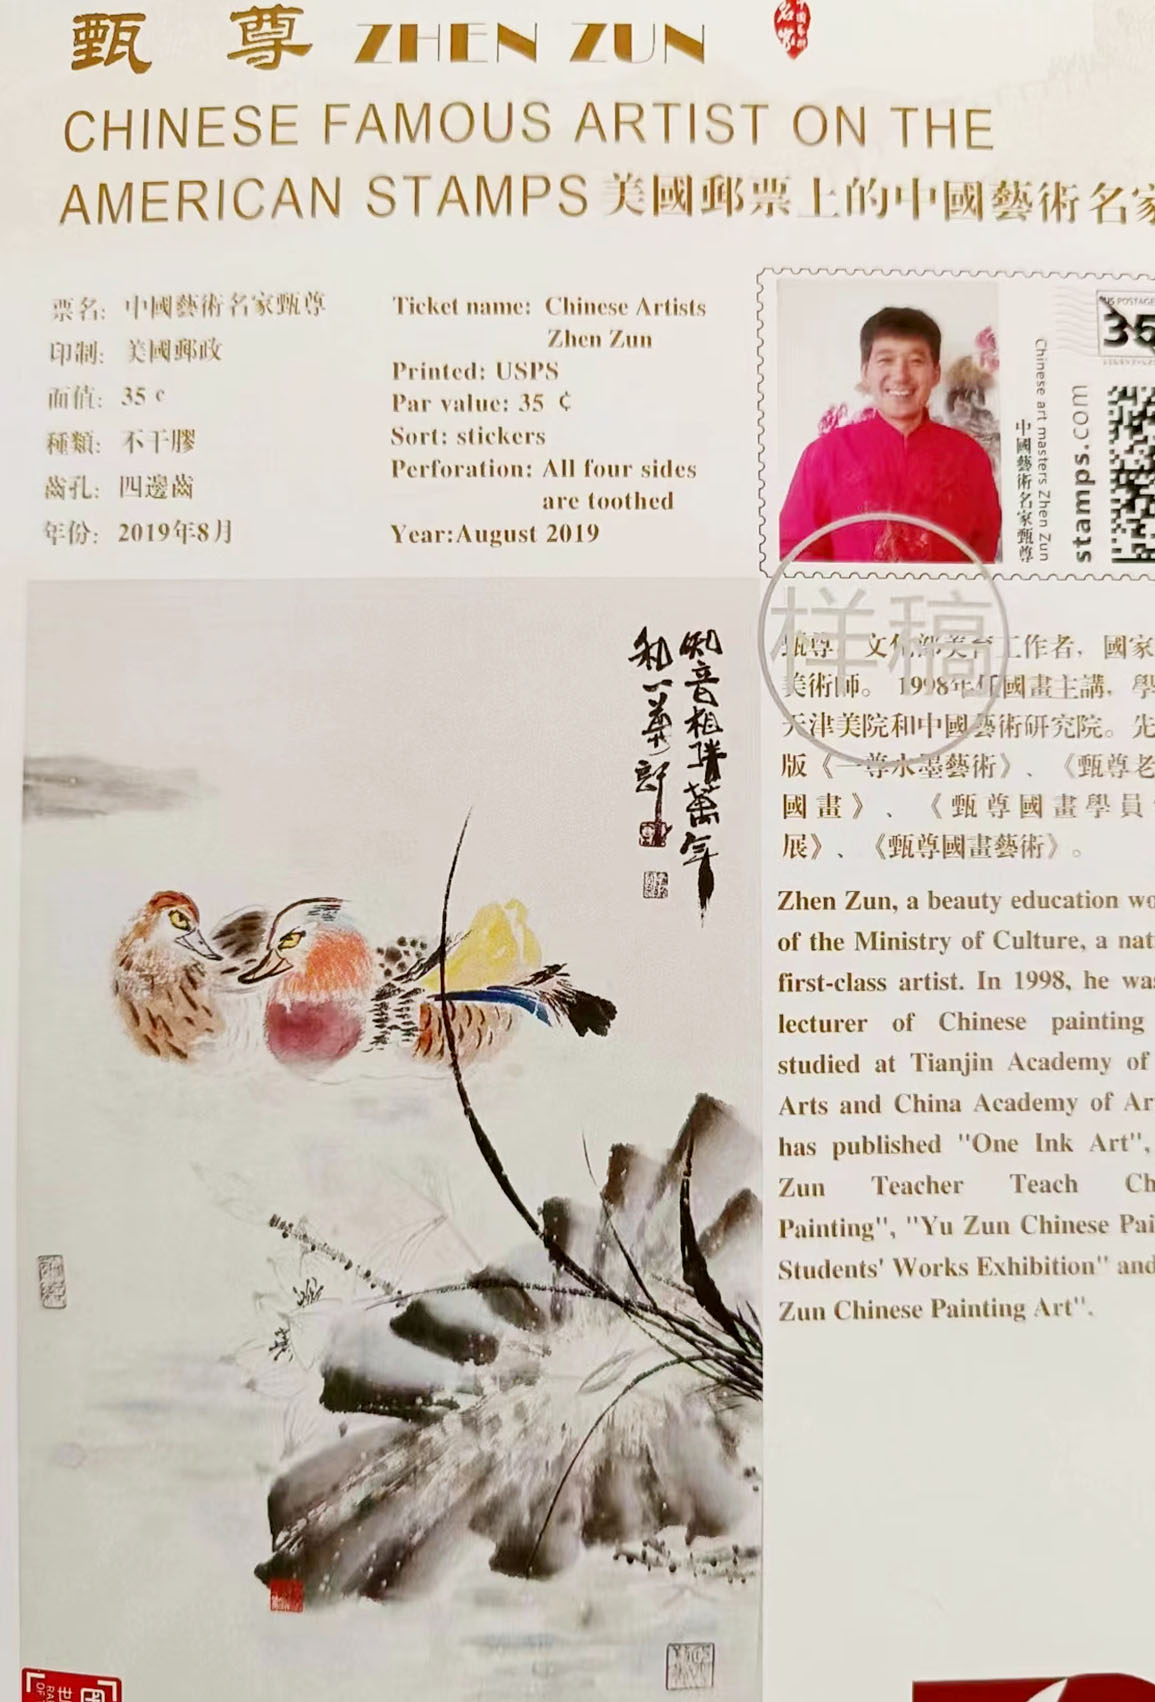 甄 尊 ZHEN ZUN
CHINESE FAMOUS ARTIST ON THE
AMERICAN STAMPS 美國郵票上的中國藝術名家
票名: 中國藝術名家甄尊
印制: 美國郵政
面值: 35 ¢
種類: 不干膠
齒孔: 四邊齒
年份: 2019年8月
Ticket name: Chinese Artists
Zhen Zun
Printed: USPS
Par value: 35 ¢
Sort: stickers
Perforation: All four sides
are toothed
Year:August 2019
中國藝術名家甄尊
Chinese art masters Zhen Zun
stamps.com
US POSTAGE
35
样稿
甄尊 文化部美育工作者，國家
美術師。 1998年任國畫主講，學
天津美院和中國藝術研究院。先
版《一尊水墨藝術》、《甄尊老
國畫》、《甄尊國畫學員
展》、《甄尊國畫藝術》。
Zhen Zun, a beauty education wo
of the Ministry of Culture, a nat
first-class artist. In 1998, he was
lecturer of Chinese painting
studied at Tianjin Academy of
Arts and China Academy of Ar
has published "One Ink Art",
Zun Teacher Teach Ch
Painting", "Yu Zun Chinese Pai
Students' Works Exhibition" and
Zun Chinese Painting Art".
知音相伴萬年
世